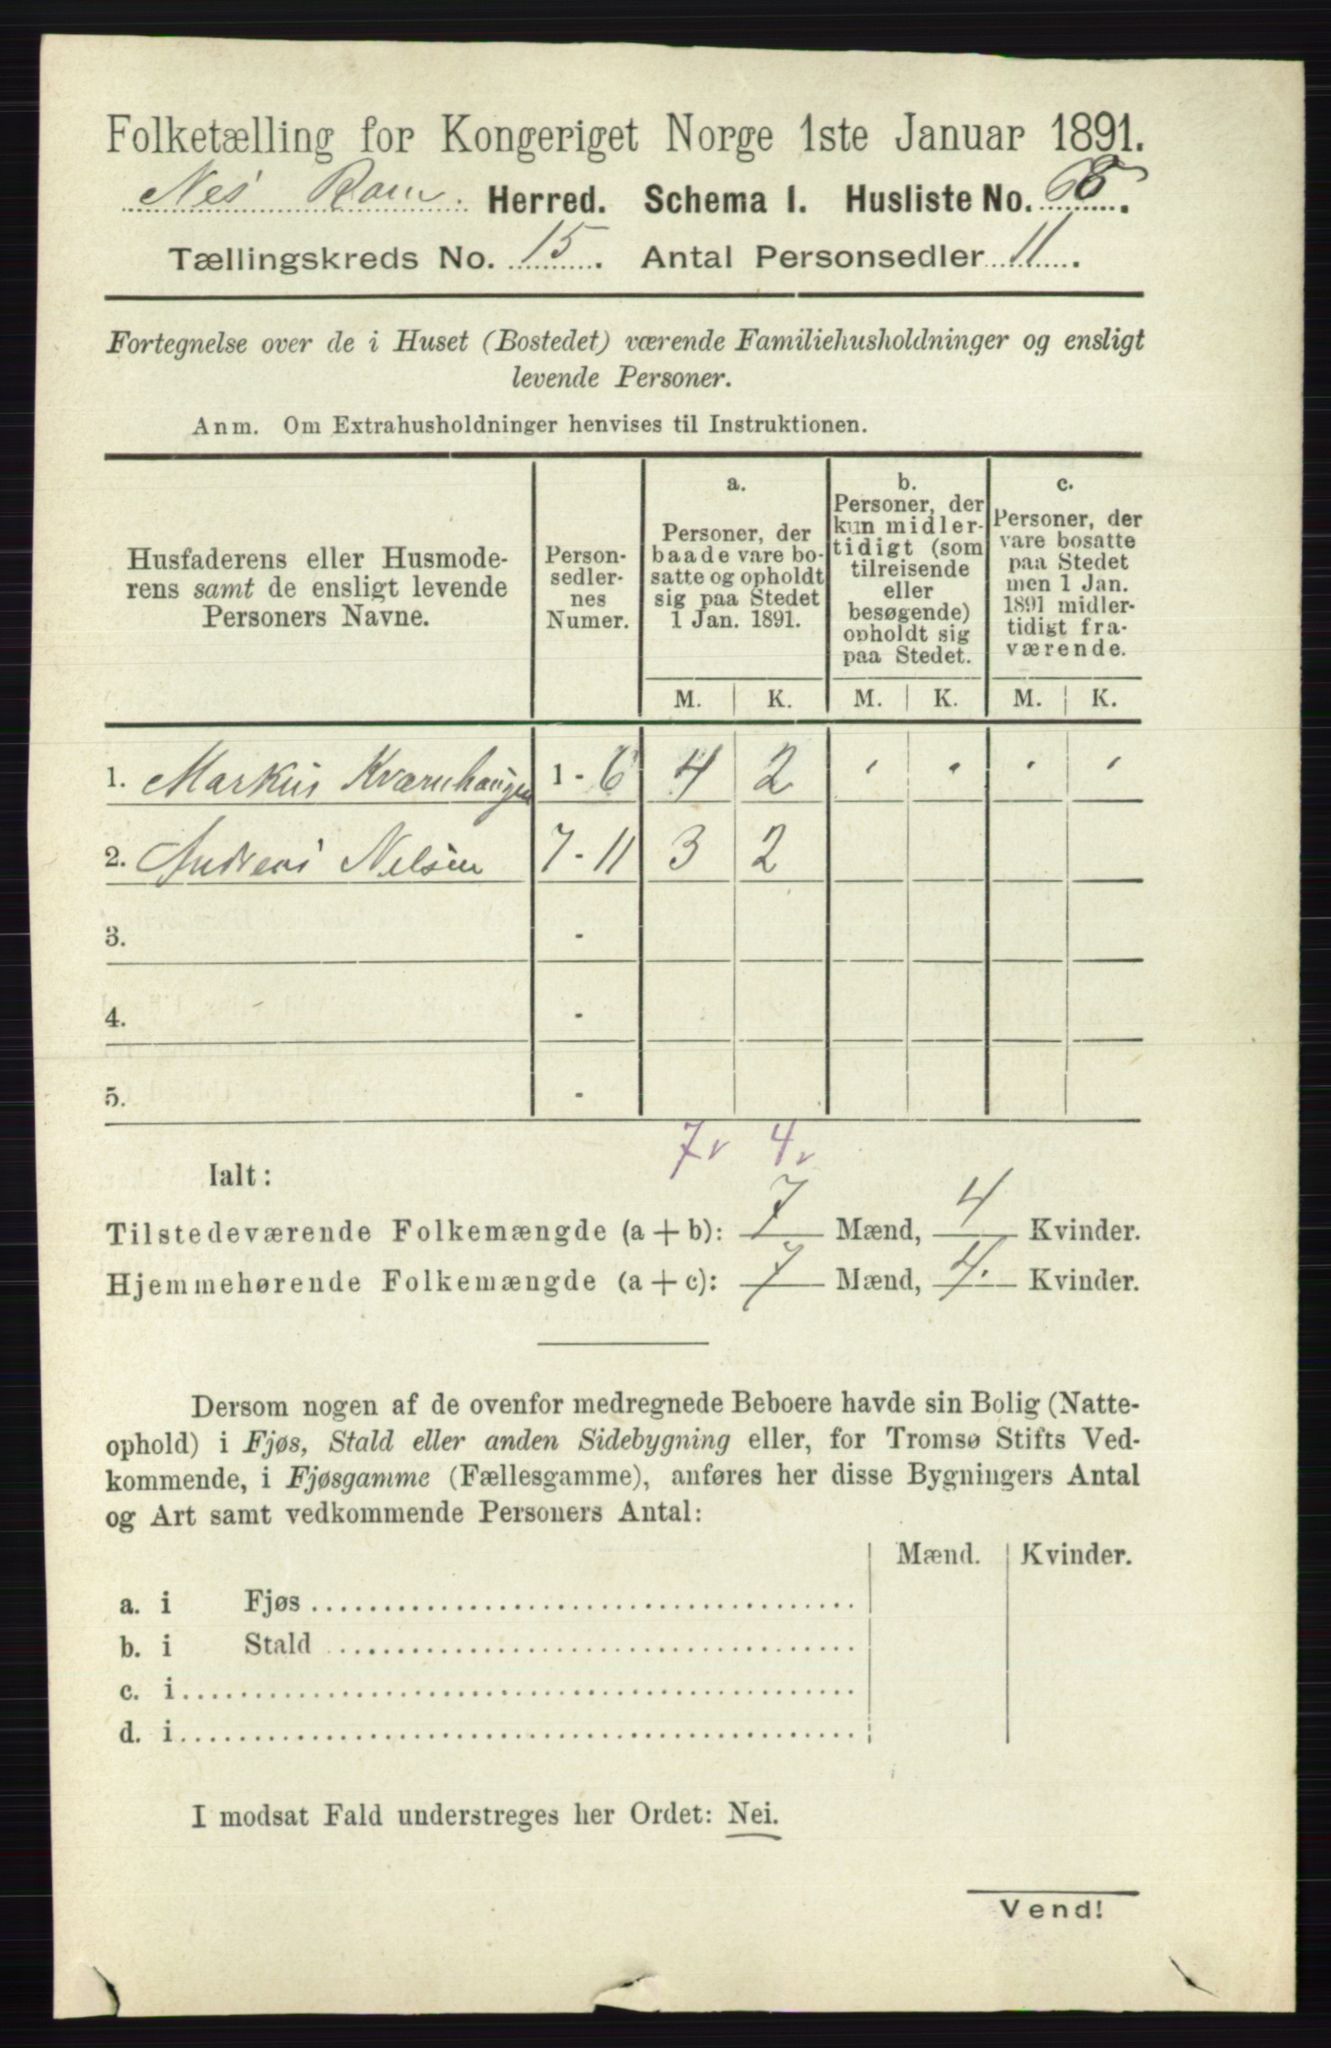 Folketælling for Kongeriget Norge 1ste Januar 1891.
Nes Rom. Herred. Schema I. Husliste No. 68.
Tællingskreds No. 15. Antal Personsedler 11.
Fortegnelse over de i Huset (Bostedet) værende Familiehusholdninger og ensligt
levende Personer.
Anm. Om Extrahusholdninger henvises til Instruktionen.
Husfaderens eller Husmode-
rens samt de ensligt levende
Personers Navne.
Person-
sedler-
nes
Numer.
a.
Personer, der
baade vare bo-
satte og opholdt
sig paa Stedet
1 Jan. 1891.
b.
Personer, der
kun midler-
tidigt (som
tilreisende
eller
besøgende)
opholdt sig
paa Stedet.
c.
Personer, der
vare bosatte
paa Stedet
men 1 Jan.
1891 midler-
tidigt fra-
værende.
M. K. M. K. M. K.
1. Markus Kværnhaugen 1 - 6 4 2
2. Andreas Nelsen 7 - 11 3 2
3. -
4. -
5. -
7 v 4 v
Ialt:
Tilstedeværende Folkemængde (a + b): 7 Mænd, 4 Kvinder.
Hjemmehørende Folkemængde (a + c): 7 Mænd, 4. Kvinder.
Dersom nogen af de ovenfor medregnede Beboere havde sin Bolig (Natte-
ophold) i Fjøs, Stald eller anden Sidebygning eller, for Tromsø Stifts Ved-
kommende, i Fjøsgamme (Fællesgamme), anføres her disse Bygningers Antal
og Art samt vedkommende Personers Antal:
Mænd. Kvinder.
a. i Fjøs
b. i Stald
c. i
d. i
I modsat Fald understreges her Ordet: Nei.
Vend!